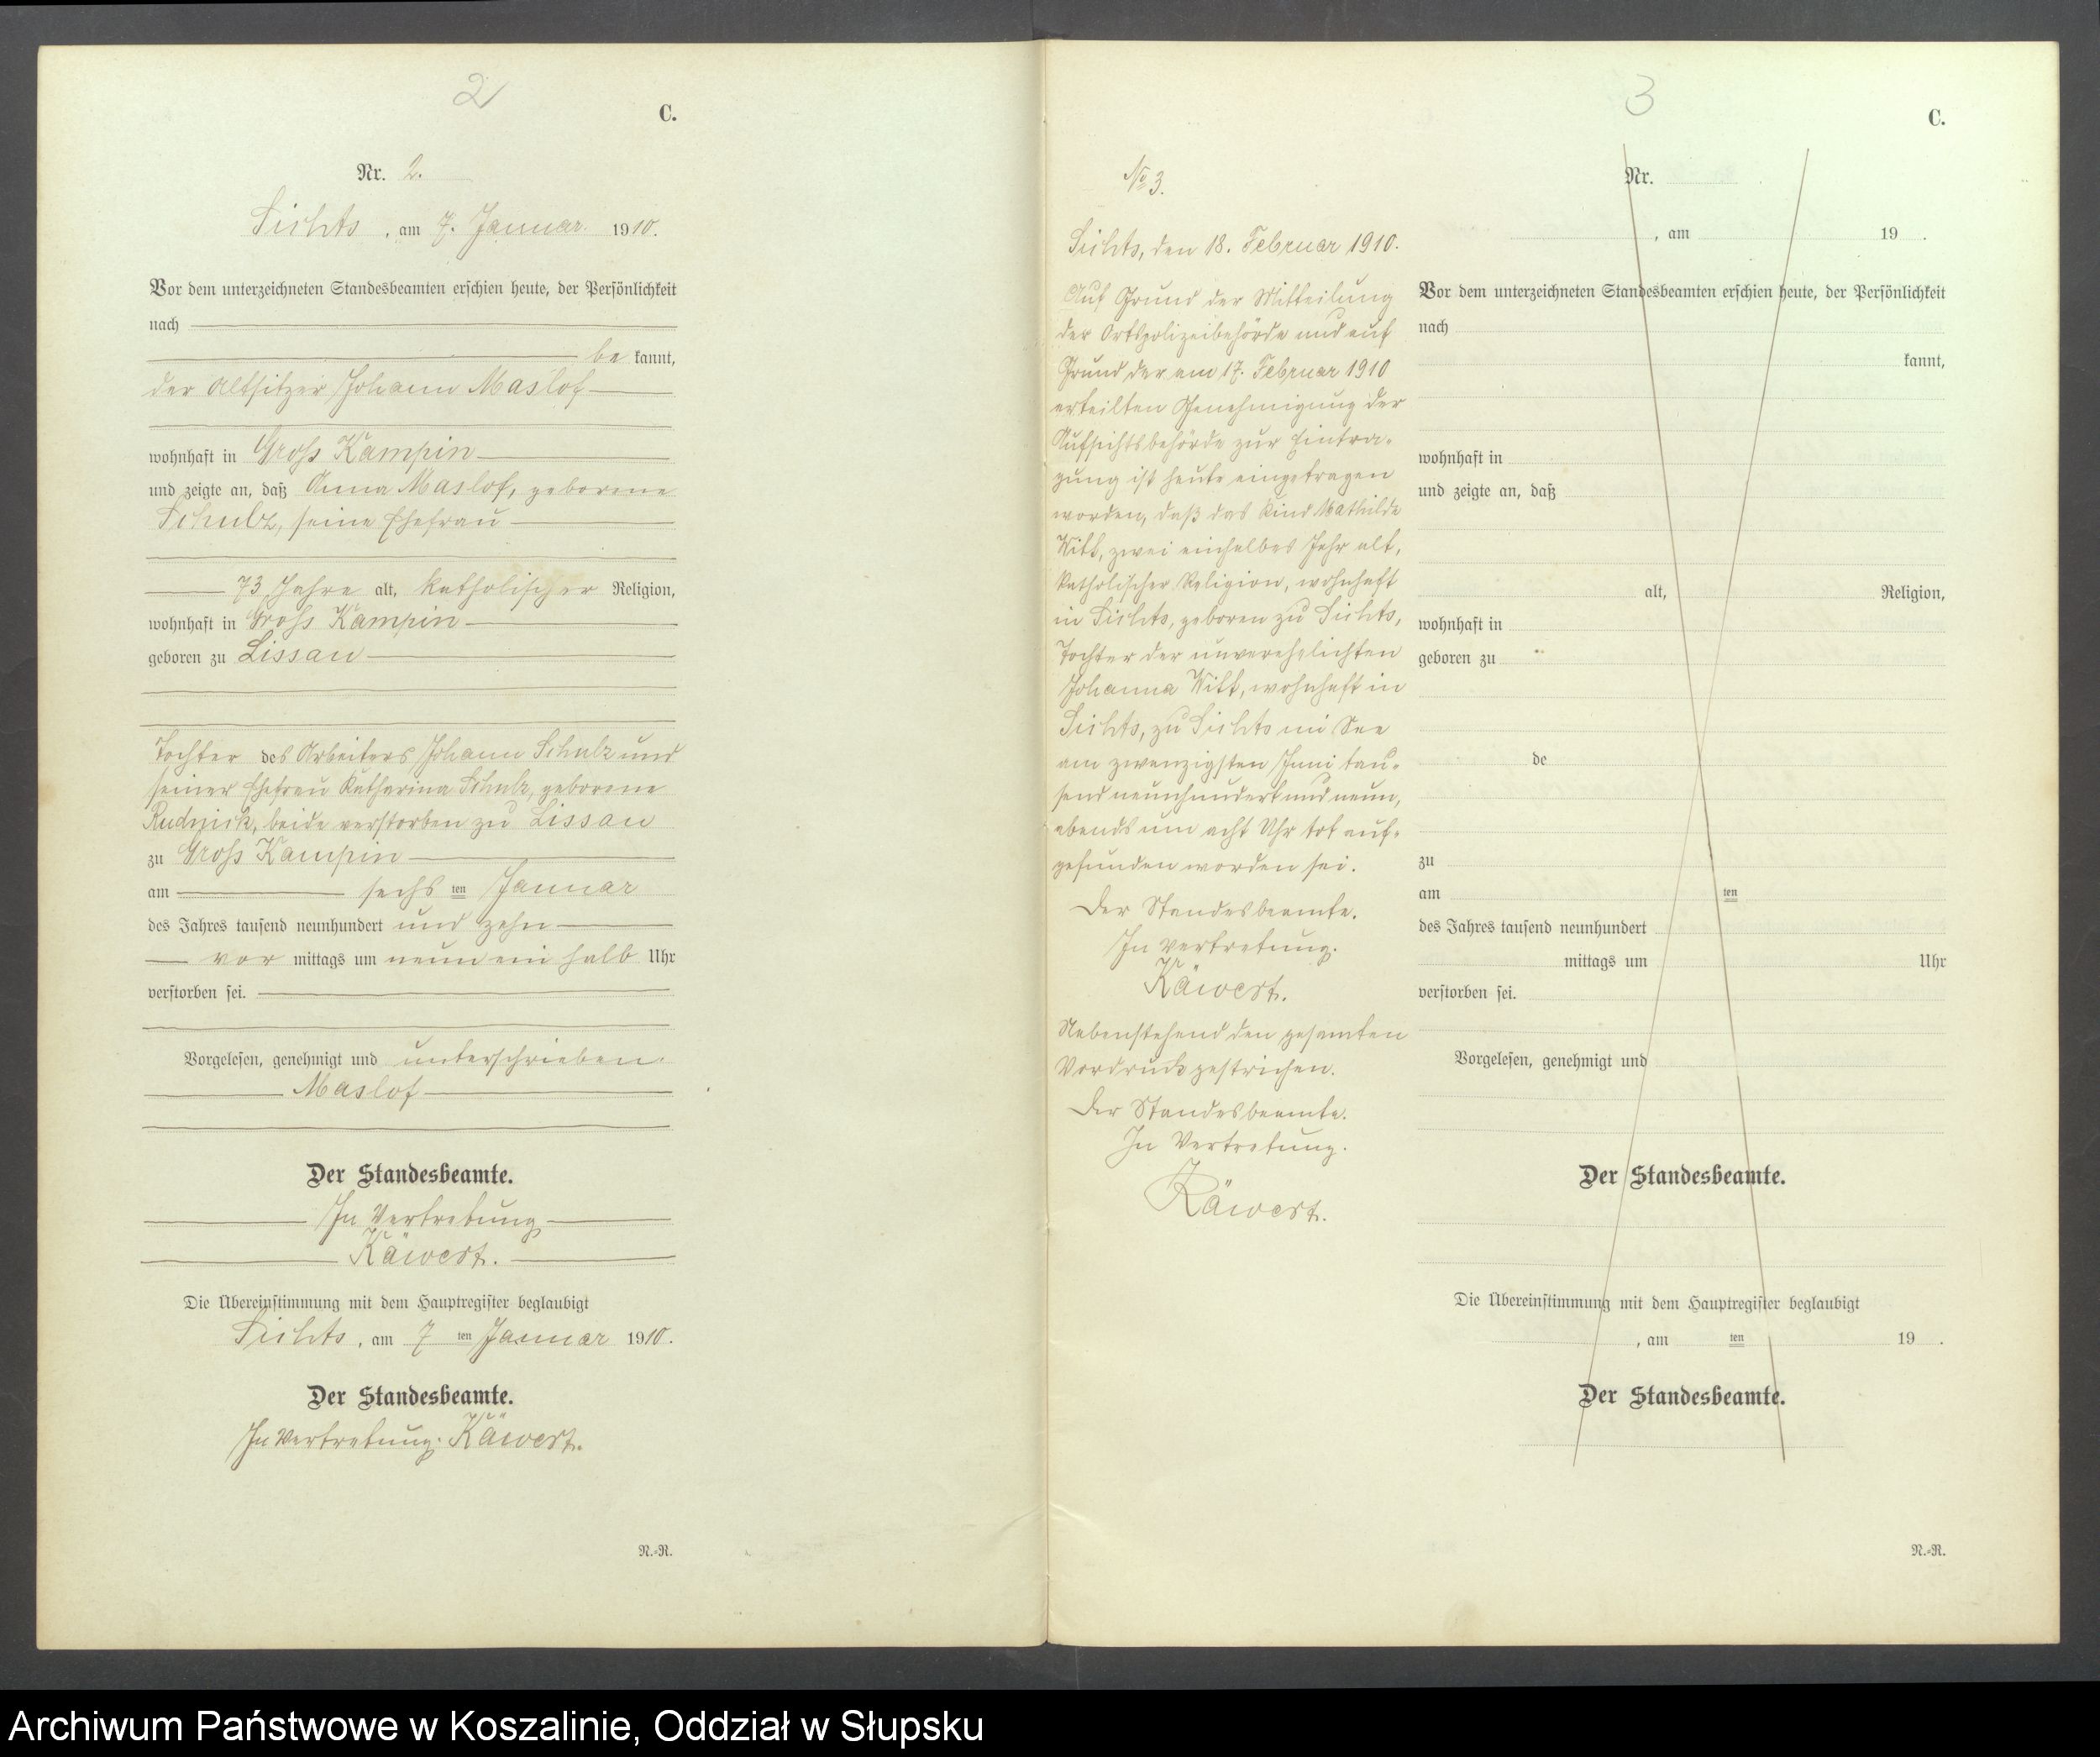 2
C.
Nr. 2.
Lichts, am 7. Januar 1910.
Vor dem unterzeichneten Standesbeamten erschien heute, der Persönlichkeit
nach
be kannt,
der Altsitzer Johann Maslof
wohnhaft in Gross Kampin
und zeigte an, daß Anna Maslof, geborene
Schulz, seine Ehefrau
73 Jahre alt, katholischer Religion,
wohnhaft in Gross Kampin
geboren zu Lissau
Tochter des Arbeiters Johann Schulz und
seiner Ehefrau Katharina Schulz, geborene
Rudnick, beide verstorben zu Lissau
zu Gross Kampin
am sechs ten Januar
des Jahres tausend neunhundert und zehn
vor mittags um neun ein halb Uhr
verstorben sei.
Vorgelesen, genehmigt und unterschrieben.
Maslof
Der Standesbeamte.
In Vertretung
Käwert.
Die Übereinstimmung mit dem Hauptregister beglaubigt
Lichts, am 7 ten Januar 1910.
Der Standesbeamte.
In Vertretung: Käwert.
N.-R.
3
C.
No 3.
Lichts, den 18. Februar 1910.
Auf Grund der Mitteilung
der Ortspolizeibehörde und auf
Grund der am 17. Februar 1910
erteilten Genehmigung der
Aufsichtsbehörde zur Eintra-
gung ist heute eingetragen
worden, daß das Kind Mathilde
Witt, zwei einhalbes Jahr alt,
katholischer Religion, wohnhaft
in Lichts, geboren zu Lichts,
Tochter der unverehelichten
Johanna Witt, wohnhaft in
Lichts, zu Lichts im See
am zwanzigsten Juni tau-
send neunhundert und neun,
abends um acht Uhr tot auf-
gefunden worden sei.
Der Standesbeamte.
In Vertretung.
Käwert.
Nebenstehend den gesamten
Vordruck gestrichen.
Der Standesbeamte.
In Vertretung.
Käwert.
Nr.
, am 19 .
Vor dem unterzeichneten Standesbeamten erschien heute, der Persönlichkeit
nach
kannt,
wohnhaft in
und zeigte an, daß
alt, Religion,
wohnhaft in
geboren zu
de
zu
am ten
des Jahres tausend neunhundert
mittags um Uhr
verstorben sei.
Vorgelesen, genehmigt und
Der Standesbeamte.
Die Übereinstimmung mit dem Hauptregister beglaubigt
, am ten 19 .
Der Standesbeamte.
N.-R.
Archiwum Państwowe w Koszalinie, Oddział w Słupsku